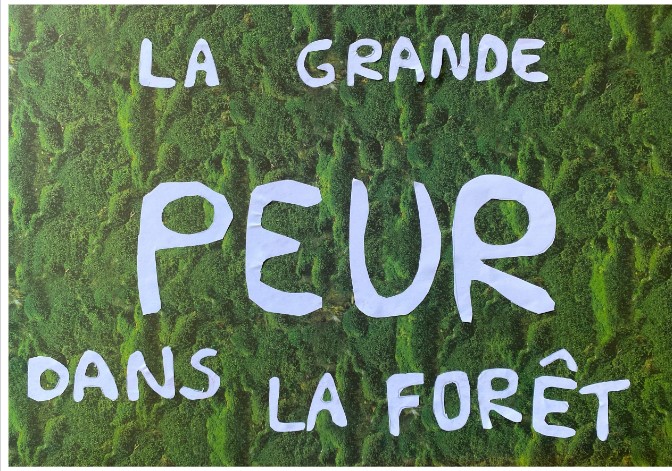 LA GRANDE
PEUR
DANS LA FORÊT